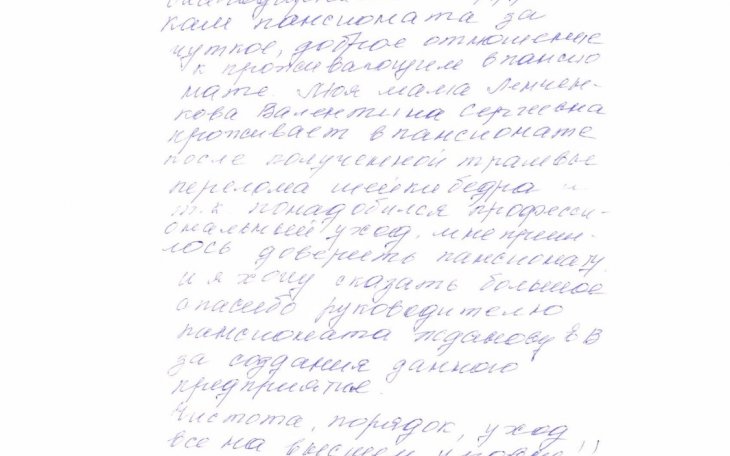 кам пансионата за
чуткое, доброе отношение
к проживающим в пансио
нате Моя мама Ленчен-
кова Валентина Сергеевна
проживает в пансионате
после полученной травмы
перелома шейки бедра и
т.к. понадобился професси-
ональный уход. мне приш-
лось доверить пансионату
и я хочу сказать большое
спасибо руководителю
пансионата Жданову Е В
за создания данного
предприятия.
Чистота, порядок, уход
все на высшем уровне!!